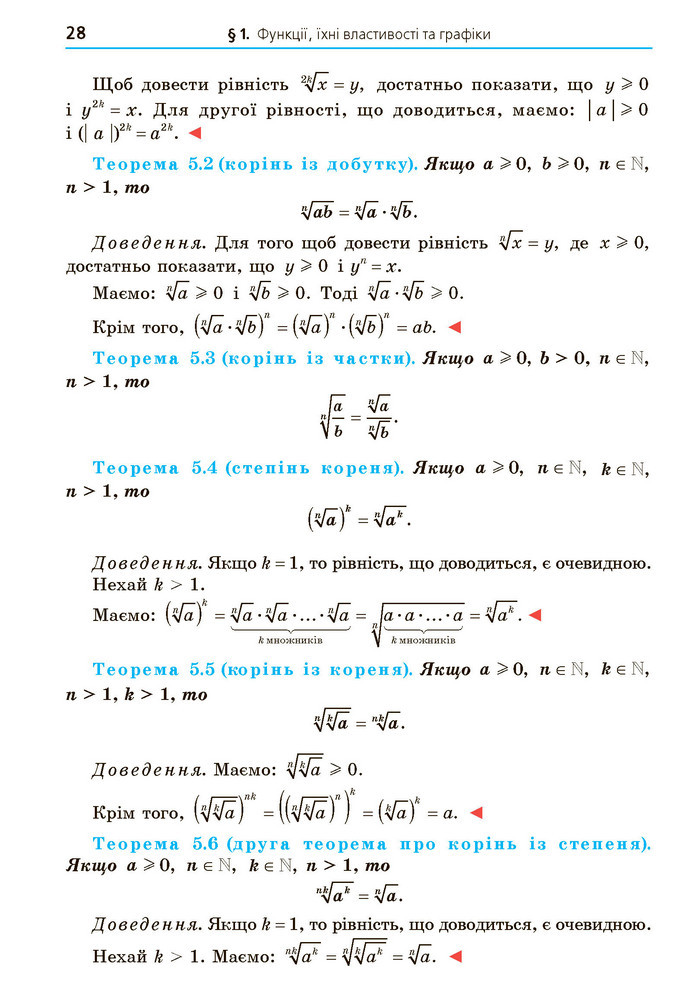 28 § 1. Функції, їхні властивості та графіки
Щоб довести рівність ²ᵏ√x = y, достатньо показати, що y ⩾ 0
і y²ᵏ = x. Для другої рівності, що доводиться, маємо: |a| ⩾ 0
і (|a|)²ᵏ = a²ᵏ. ◄
Теорема 5.2 (корінь із добутку). Якщо a ⩾ 0, b ⩾ 0, n ∈ ℕ,
n > 1, то
ⁿ√(ab) = ⁿ√a · ⁿ√b.
Доведення. Для того щоб довести рівність ⁿ√x = y, де x ⩾ 0,
достатньо показати, що y ⩾ 0 і yⁿ = x.
Маємо: ⁿ√a ⩾ 0 і ⁿ√b ⩾ 0. Тоді ⁿ√a · ⁿ√b ⩾ 0.
Крім того, (ⁿ√a · ⁿ√b)ⁿ = (ⁿ√a)ⁿ · (ⁿ√b)ⁿ = ab. ◄
Теорема 5.3 (корінь із частки). Якщо a ⩾ 0, b > 0, n ∈ ℕ,
n > 1, то
ⁿ√(a/b) = ⁿ√a / ⁿ√b.
Теорема 5.4 (степінь кореня). Якщо a ⩾ 0, n ∈ ℕ, k ∈ ℕ,
n > 1, то
(ⁿ√a)ᵏ = ⁿ√(aᵏ).
Доведення. Якщо k = 1, то рівність, що доводиться, є очевидною.
Нехай k > 1.
Маємо: (ⁿ√a)ᵏ = ⁿ√a · ⁿ√a · ... · ⁿ√a = ⁿ√(a · a · ... · a) = ⁿ√(aᵏ). ◄
k множників k множників
Теорема 5.5 (корінь із кореня). Якщо a ⩾ 0, n ∈ ℕ, k ∈ ℕ,
n > 1, k > 1, то
ⁿ√(ᵏ√a) = ⁿᵏ√a.
Доведення. Маємо: ⁿ√(ᵏ√a) ⩾ 0.
Крім того, (ⁿ√(ᵏ√a))ⁿᵏ = ((ⁿ√(ᵏ√a))ⁿ)ᵏ = (ᵏ√a)ᵏ = a. ◄
Теорема 5.6 (друга теорема про корінь із степеня).
Якщо a ⩾ 0, n ∈ ℕ, k ∈ ℕ, n > 1, то
ⁿᵏ√(aᵏ) = ⁿ√a.
Доведення. Якщо k = 1, то рівність, що доводиться, є очевидною.
Нехай k > 1. Маємо: ⁿᵏ√(aᵏ) = ⁿ√(ᵏ√(aᵏ)) = ⁿ√a. ◄